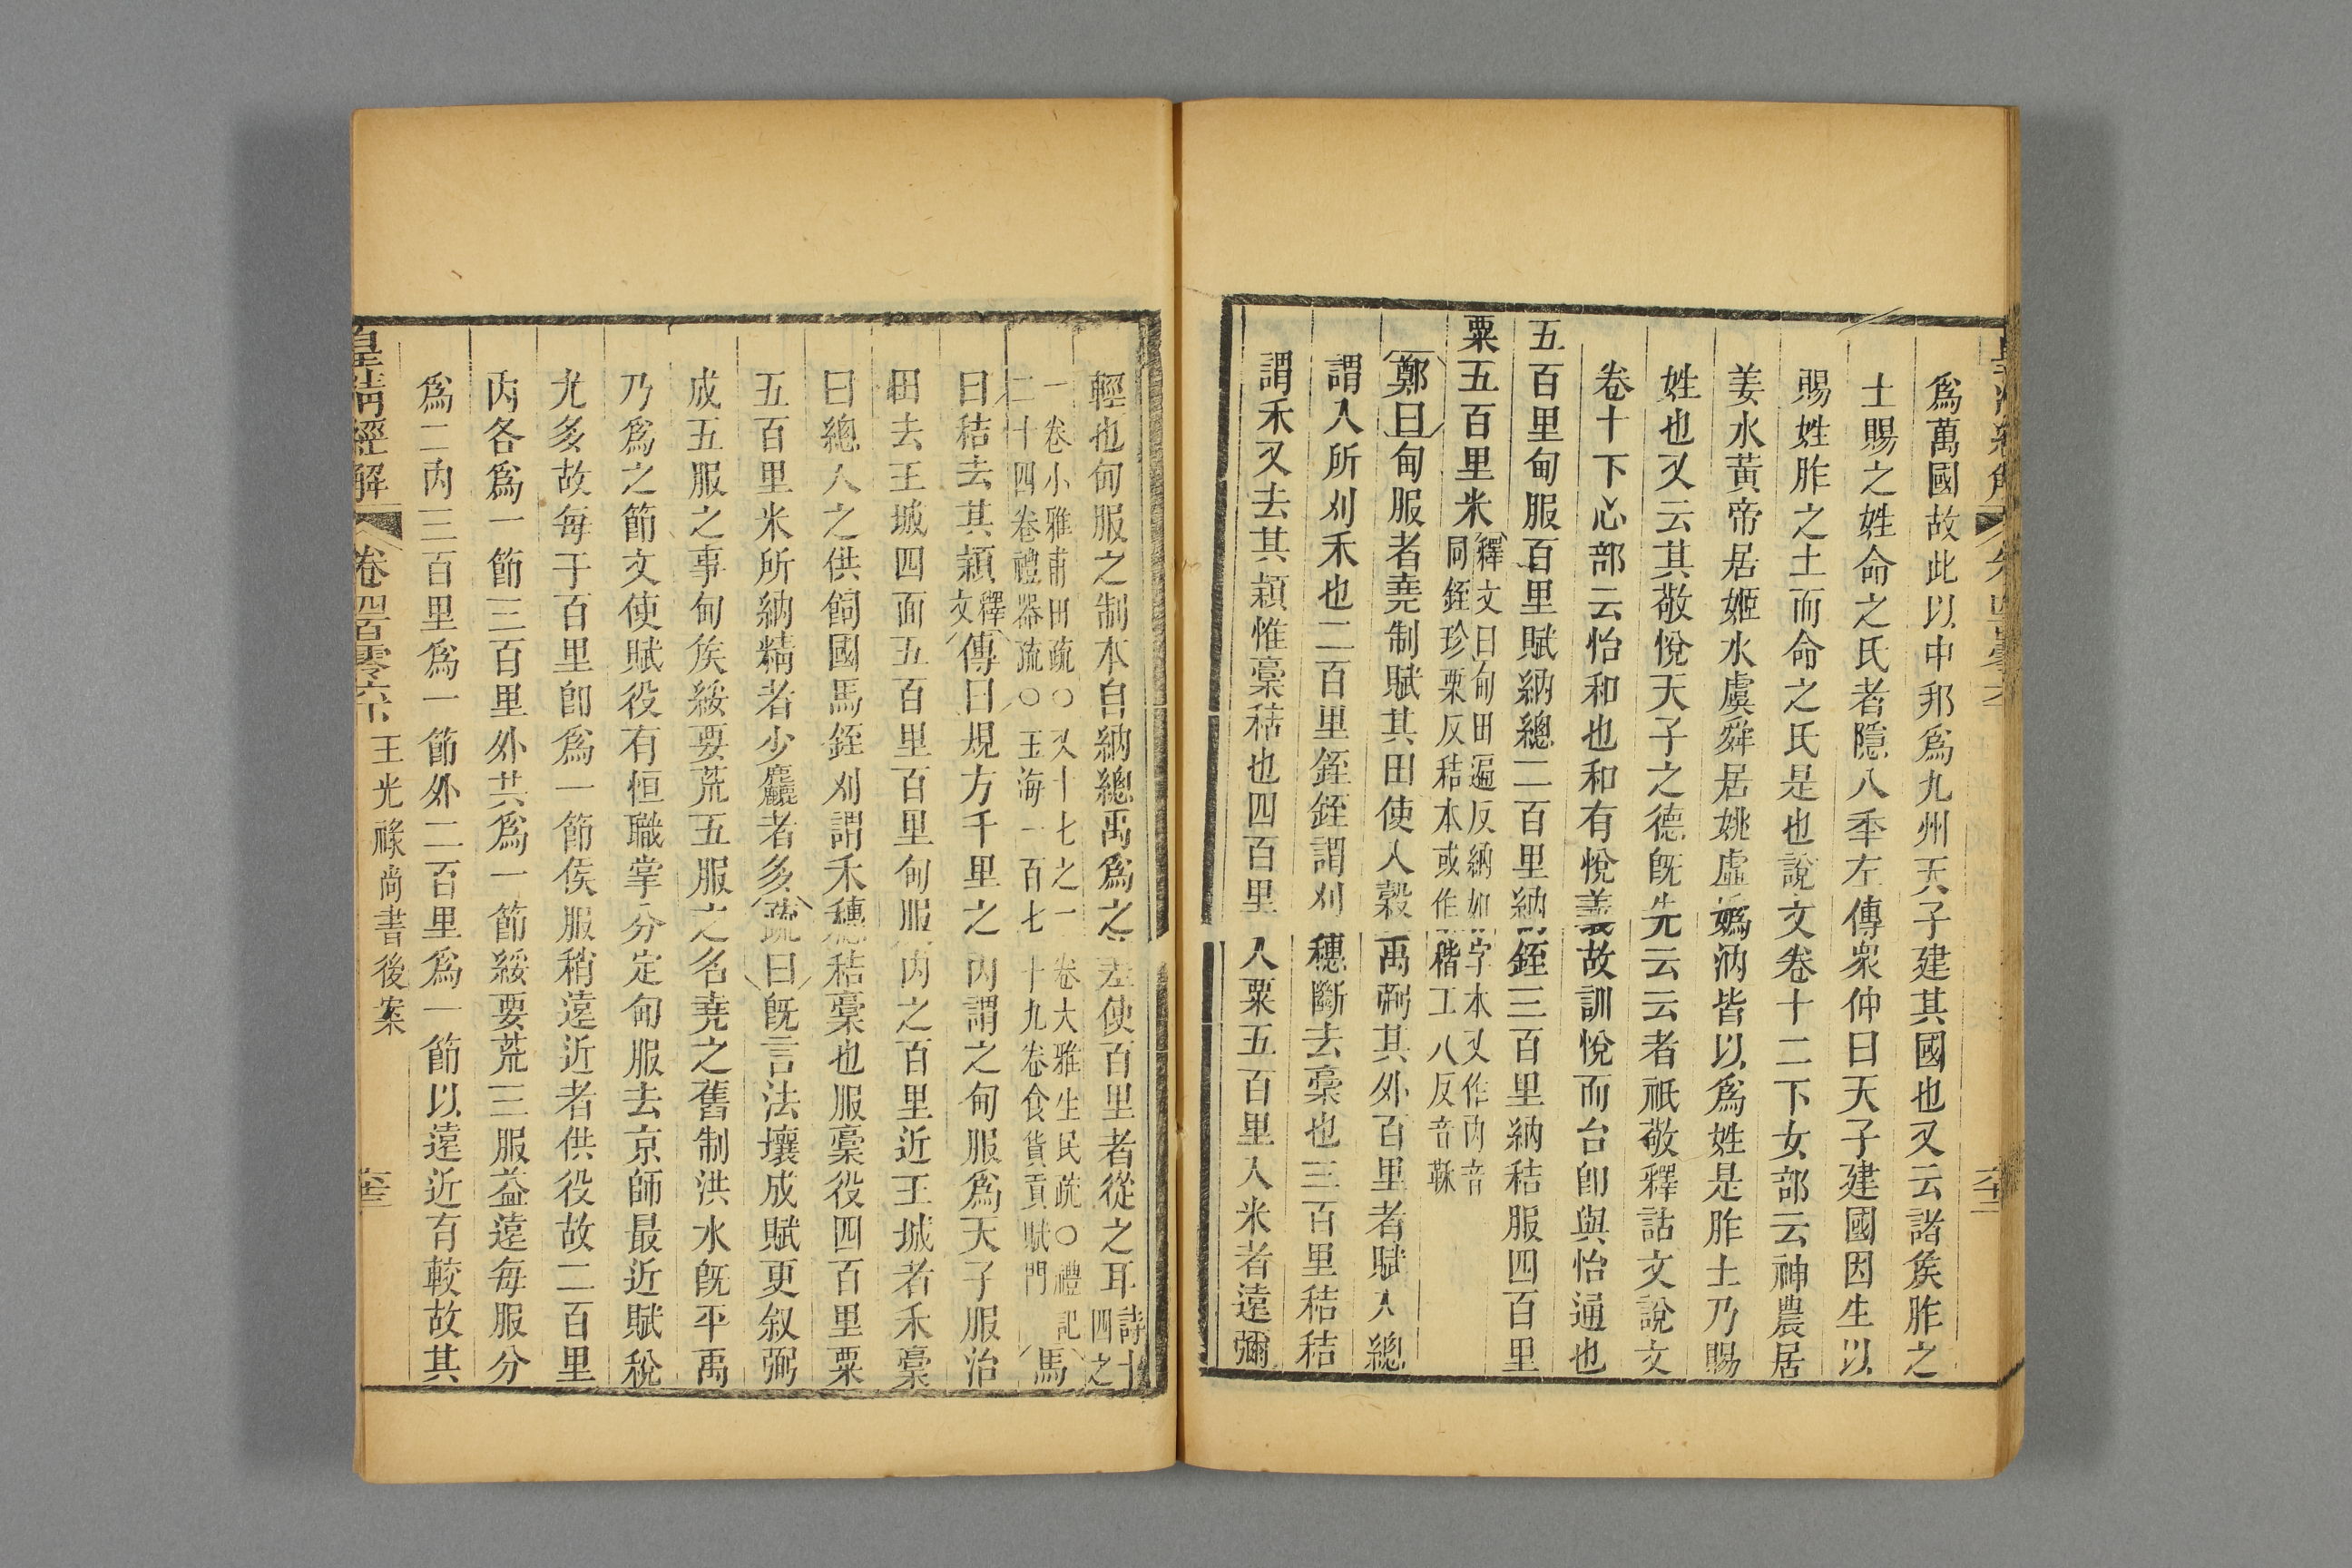 爲萬國故此以中邦爲九州天子建其國也又云諸矦胙之
土賜之姓命之氏者隱八年左傳衆仲曰天子建國因生以
賜姓胙之土而命之氏是也說文卷十二下女部云神農居
姜水黃帝居姬水虞舜居姚虛嬀汭皆以爲姓是胙土乃賜
姓也又云其敬悅天子之德旣先云云者祇敬釋詁文說文
卷十下心部云怡和也和有悅義故訓悅而台卽與怡通也
五百里甸服百里賦納總二百里納銍三百里納秸服四百里
粟五百里米釋文曰甸田遍反納如字本又作內音
同銍珍栗反秸本或作稭工八反音鞂
鄭曰甸服者堯制賦其田使入穀禹弼其外百里者賦入總
謂入所刈禾也二百里銍銍謂刈穗斷去槀也三百里秸秸
謂禾又去其穎惟槀秸也四百里入粟五百里入米者遠彌
輕也甸服之制本自納總禹爲之差使百里者從之耳詩十
四之
一卷小雅甫田疏○又十七之一卷大雅生民疏○禮記
二十四卷禮器疏○玉海一百七十九卷食貨貢賦門
馬
曰秸去其穎釋
文傳曰規方千里之內謂之甸服爲天子服治
田去王城四面五百里百里甸服內之百里近王城者禾槀
曰總入之供飼國馬銍刈謂禾穗秸槀也服槀役四百里粟
五百里米所納精者少麤者多疏曰旣言法壤成賦更叙弼
成五服之事甸矦綏要荒五服之名堯之舊制洪水旣平禹
乃爲之節文使賦役有恒職掌分定甸服去京師最近賦稅
尤多故每于百里卽爲一節矦服稍遠近者供役故二百里
內各爲一節三百里外共爲一節綏要荒三服益遠每服分
爲二內三百里爲一節外二百里爲一節以遠近有較故其
皇淸經解
卷四百零六
王光祿尚書後案